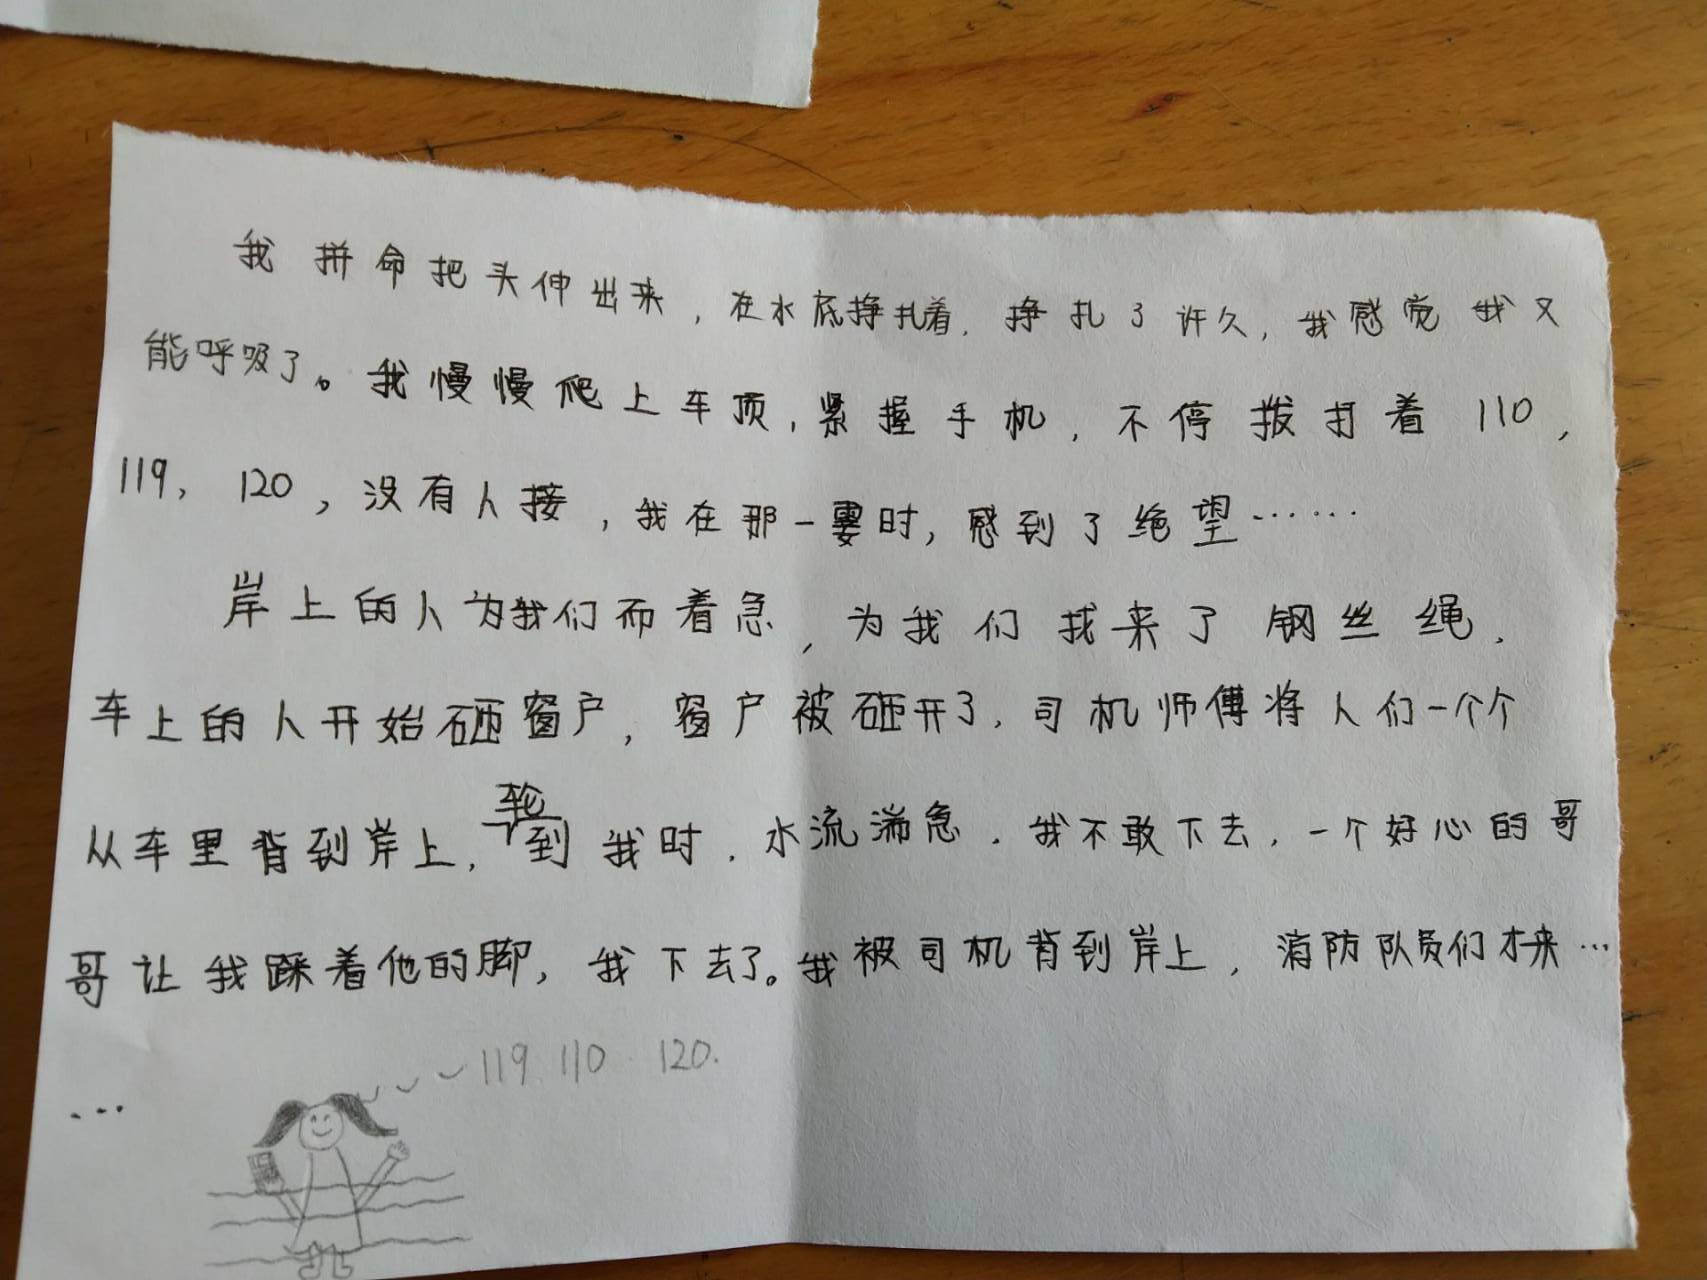 我拼命把头伸出来，在水底挣扎着，挣扎了许久，我感觉我又
能呼吸了。我慢慢爬上车顶，紧握手机，不停拨打着110，
119，120，没有人接，我在那一霎时，感到了绝望……
岸上的人为我们而着急，为我们找来了钢丝绳，
车上的人开始砸窗户，窗户被砸开了，司机师傅将人们一个个
从车里背到岸上，轮到我时，水流湍急，我不敢下去，一个好心的哥
哥让我踩着他的脚，我下去了。我被司机背到岸上，消防队员们才来…
…
119 110 120.